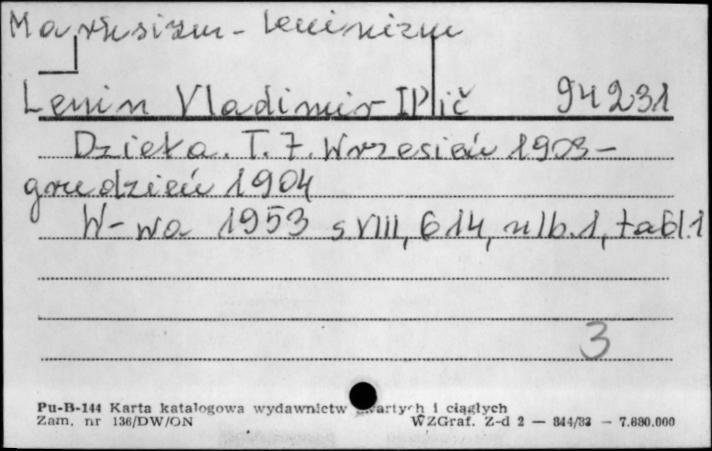 Marksizm-Leninizm
Lenin Vladimir Il'ič 94231
Dzieła. T. 7. Wrzesień 1903-
grudzień 1904
W-wa 1953 s VIII, 614, nlb. 1, tabl. 1
3
Pu-B-144 Karta katalogowa wydawnictw zwartych i ciągłych
Zam. nr 136/DW/ON WZGraf. Z-d 2 — 844/83 — 7.680.000